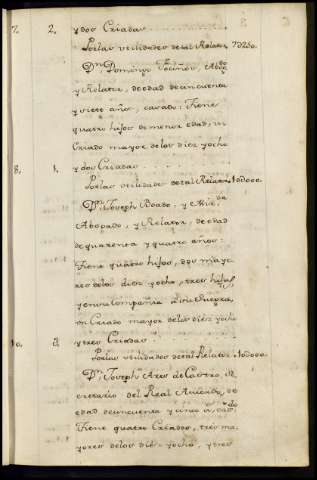 7. 2. y dos Criadas
Por las utilidades de tal Relator 7º250.
Dn. Domingo Abdo
y Relator, de edad de cinquenta
y siete años, casado: tiene
quatro hijos de menor edad, un
Criado mayor de los diez y ocho
8. 1. y dos Criadas
Por las utilidades de tal Relator 10º000.
Dn. Joseph Posado, y
Abogado, y Relator, de edad
de quarenta y quatro años:
Tiene quatro hijos, dos mayo-
res de los diez y ocho, tres hijas
y en su Compañia
un Criado mayor de los diez y ocho
10. y tres Criadas
Por las utilidades de tal Relator 10º000.
Dn. Joseph Ares de Castro, Se
cretario del Real Acuerdo, de
edad de cinquenta y cinco a. cdo.
Tiene quatro Criados, tres ma-
yores de los diez y ocho, y tres